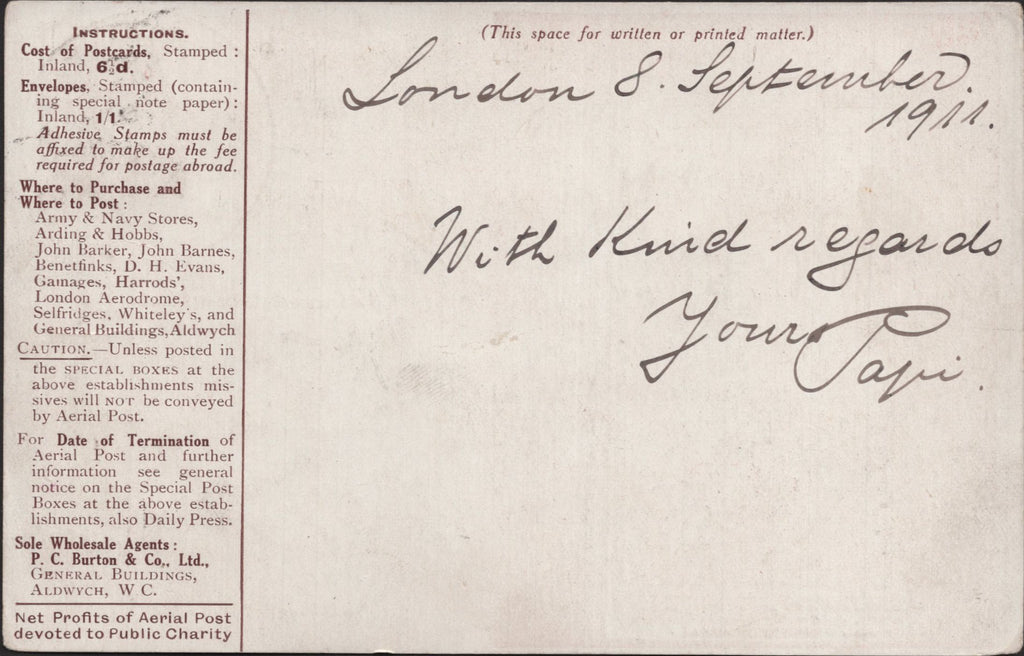 INSTRUCTIONS.
Cost of Postcards, Stamped :
Inland, 6½d.
Envelopes, Stamped (contain-
ing special note paper) :
Inland, 1/1.
Adhesive Stamps must be
affixed to make up the fee
required for postage abroad.
Where to Purchase and
Where to Post :
Army & Navy Stores,
Arding & Hobbs,
John Barker, John Barnes,
Benetfinks, D. H. Evans,
Gamages, Harrods',
London Aerodrome,
Selfridges, Whiteley's, and
General Buildings, Aldwych
CAUTION.—Unless posted in
the SPECIAL BOXES at the
above establishments mis-
sives will NOT be conveyed
by Aerial Post.
For Date of Termination of
Aerial Post and further
information see general
notice on the Special Post
Boxes at the above estab-
lishments, also Daily Press.
Sole Wholesale Agents :
P. C. Burton & Co., Ltd.,
GENERAL BUILDINGS,
ALDWYCH, W C.
Net Profits of Aerial Post
devoted to Public Charity
(This space for written or printed matter.)
London 8. September.
1911.
With Kind regards
Yours
Papi.